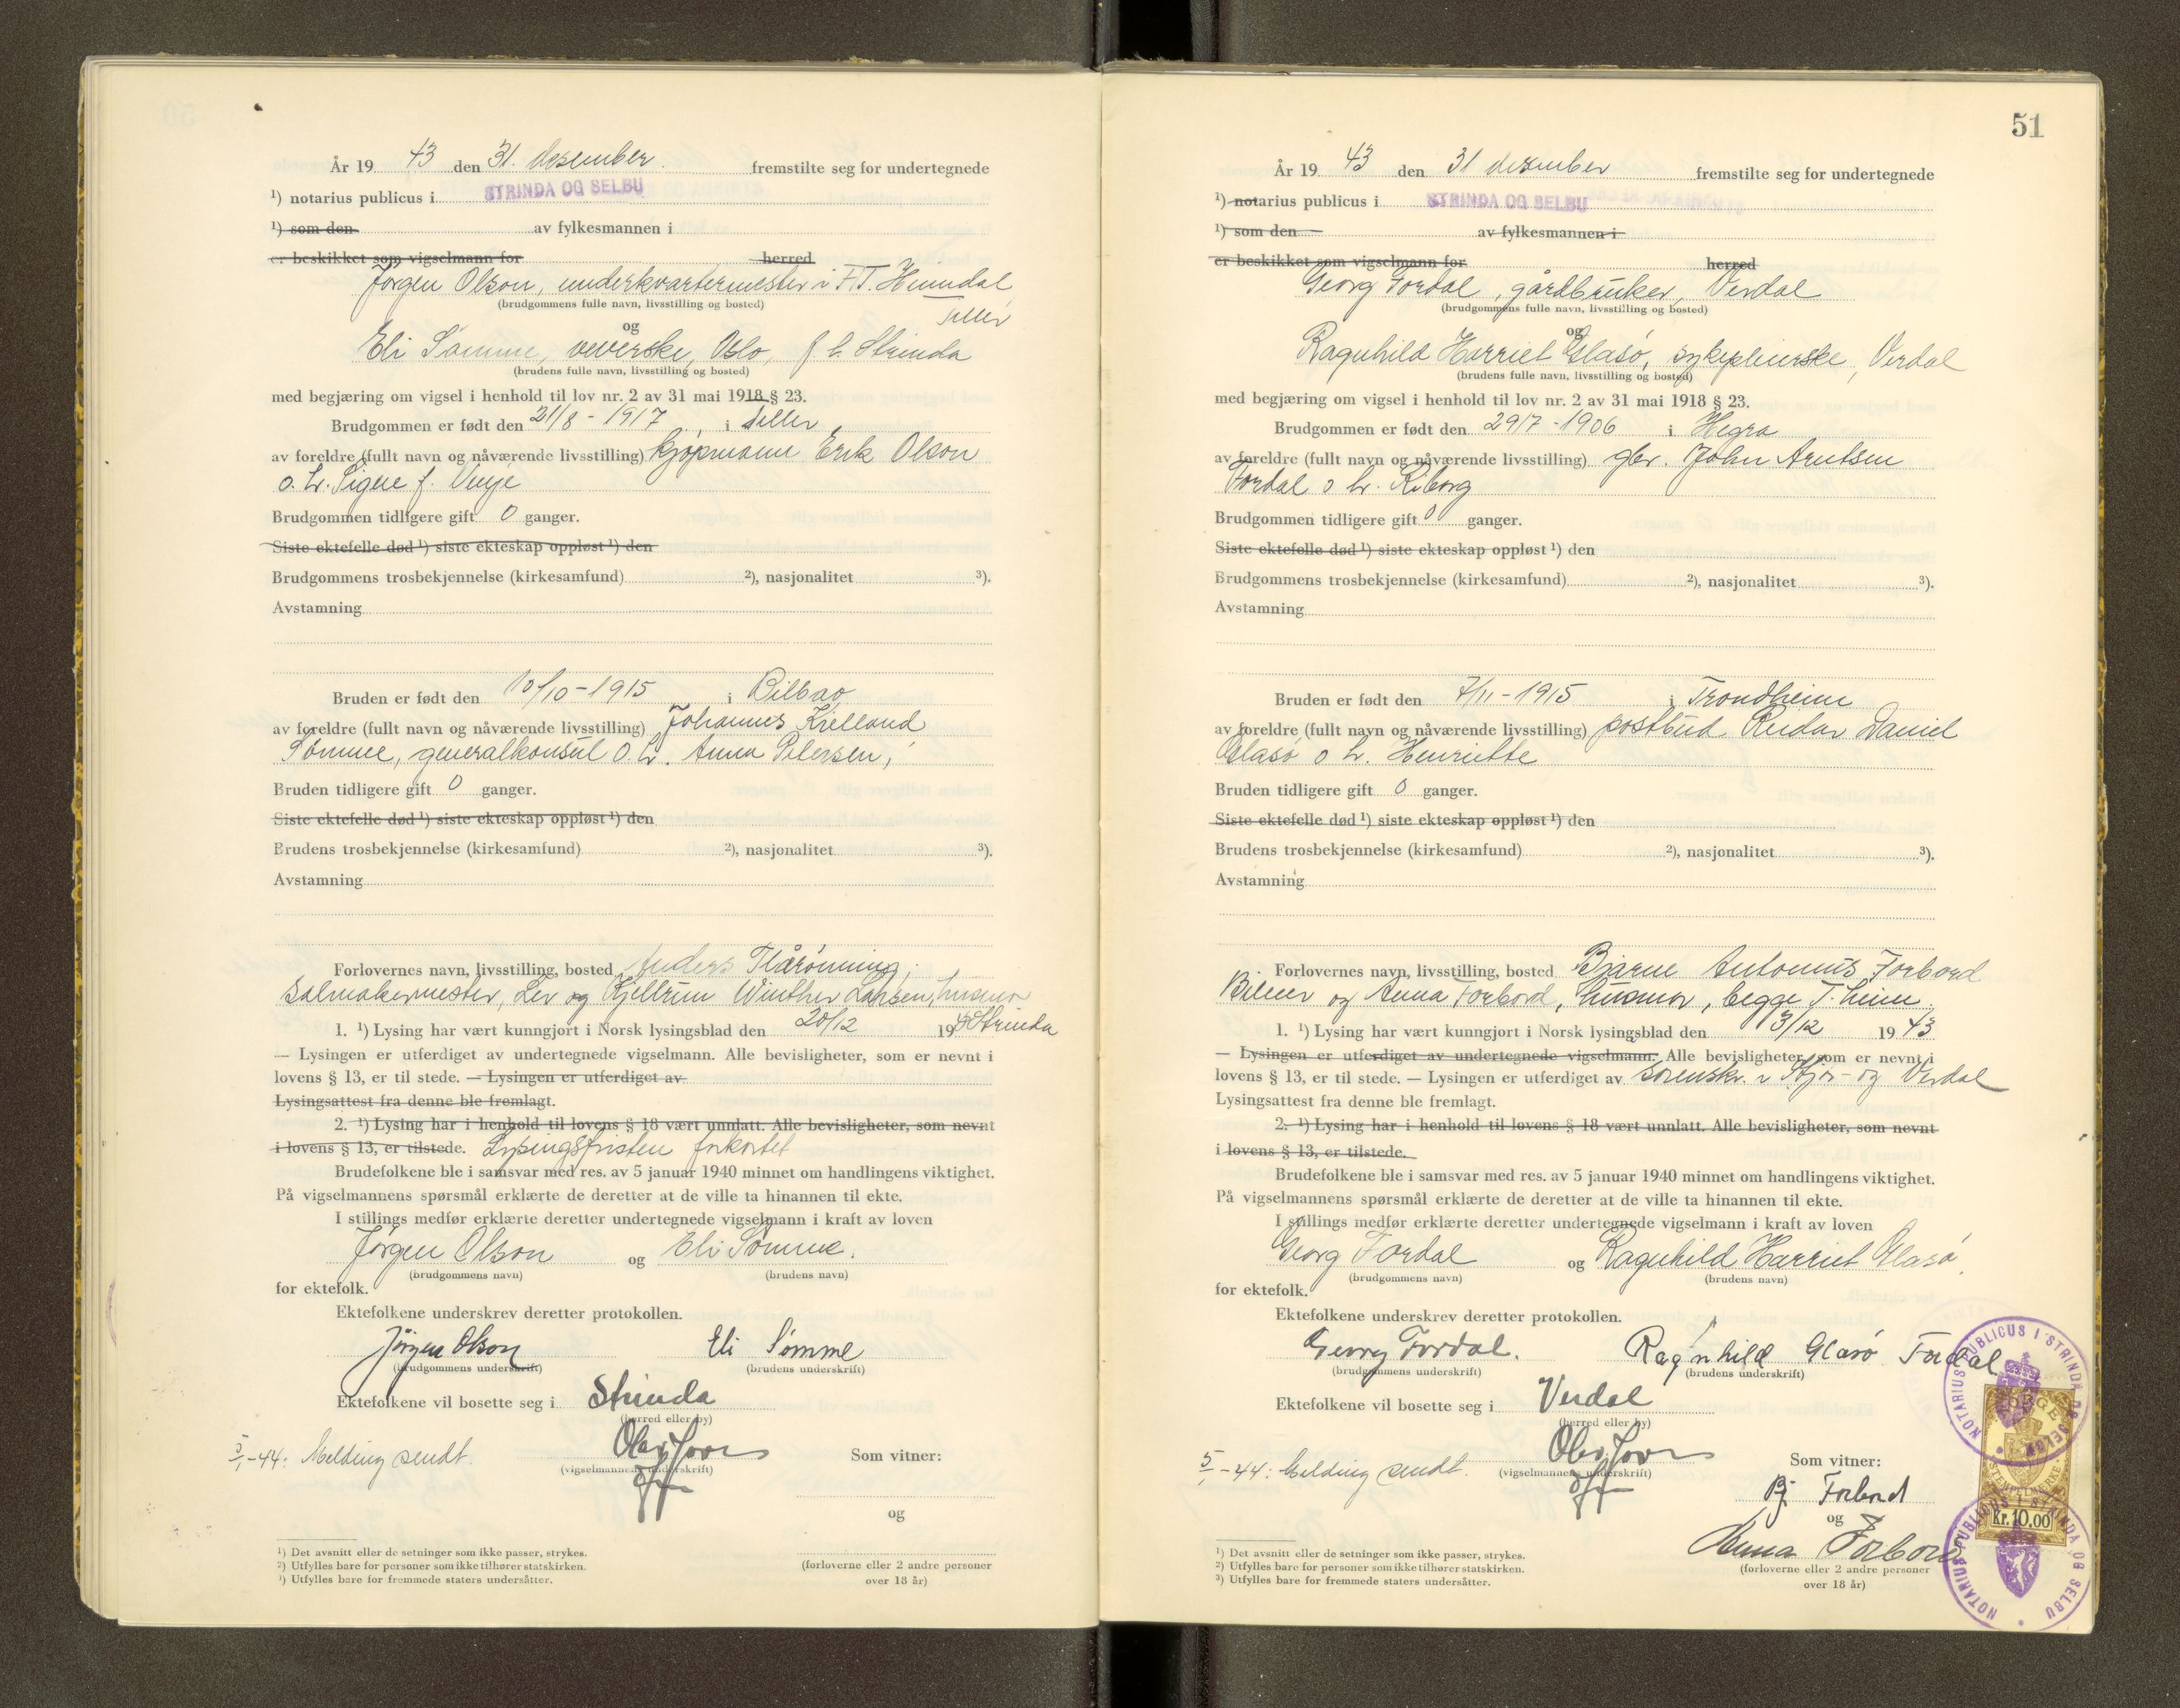 År 19 43 den 31. desember fremstilte seg for undertegnede
¹) notarius publicus i STRINDA OG SELBU
¹) som den av fylkesmannen i
er beskikket som vigselmann for herred
Jørgen Olson, underkvartermester i F.T. Heimdal
(brudgommens fulle navn, livsstilling og bosted)
Tiller
og
Eli Sømme, veverske, Oslo, f h. Strinda
(brudens fulle navn, livsstilling og bosted)
med begjæring om vigsel i henhold til lov nr. 2 av 31 mai 1918 § 23.
Brudgommen er født den 21/8 - 1917 i Tiller
av foreldre (fullt navn og nåværende livsstilling) kjøpmann Erik Olson
o. h. Signe f. Vinje
Brudgommen tidligere gift 0 ganger.
Siste ektefelle død ¹) siste ekteskap oppløst ¹) den
Brudgommens trosbekjennelse (kirkesamfund) ²), nasjonalitet ³).
Avstamning
Bruden er født den 10/10 - 1915 i Bilbao
av foreldre (fullt navn og nåværende livsstilling) Johannes Kielland
Sømme, generalkonsul o. h. Anna Petersen,
Bruden tidligere gift 0 ganger.
Siste ektefelle død ¹) siste ekteskap oppløst ¹) den
Brudens trosbekjennelse (kirkesamfund) ²), nasjonalitet ³).
Avstamning
Forlovernes navn, livsstilling, bosted Anders Flårønning,
salmakermester, Ler og Kjellrun Winther Larsen, husmor
1. ¹) Lysing har vært kunngjort i Norsk lysingsblad den 20/12 19 Strinda
— Lysingen er utferdiget av undertegnede vigselmann. Alle bevisligheter, som er nevnt i
lovens § 13, er til stede. — Lysingen er utferdiget av
Lysingsattest fra denne ble fremlagt.
2. ¹) Lysing har i henhold til lovens § 18 vært unnlatt. Alle bevisligheter, som nevnt
i lovens § 13, er tilstede. Lysingsfristen forkortet
Brudefolkene ble i samsvar med res. av 5 januar 1940 minnet om handlingens viktighet.
På vigselmannens spørsmål erklærte de deretter at de ville ta hinannen til ekte.
I stillings medfør erklærte deretter undertegnede vigselmann i kraft av loven
Jørgen Olson og Eli Sømme.
(brudgommens navn) (brudens navn)
for ektefolk.
Ektefolkene underskrev deretter protokollen.
Jörgen Olson Eli Sømme
(brudgommens underskrift) (brudens underskrift)
Ektefolkene vil bosette seg i Strinda
(herred eller by)
5/1-44: Melding sendt. Som vitner:
(vigselmannens underskrift)
og
¹) Det avsnitt eller de setninger som ikke passer, strykes.
²) Utfylles bare for personer som ikke tilhører statskirken.
³) Utfylles bare for fremmede staters undersåtter.
(forloverne eller 2 andre personer
over 18 år)
51
År 19 43 den 31 desember fremstilte seg for undertegnede
¹) notarius publicus i STRINDA OG SELBU
¹) som den av fylkesmannen i
er beskikket som vigselmann for herred
Georg Fordal, gårdbruker, Verdal
(brudgommens fulle navn, livsstilling og bosted)
og
Ragnhild Harriet Glasø, sykepleierske, Verdal
(brudens fulle navn, livsstilling og bosted)
med begjæring om vigsel i henhold til lov nr. 2 av 31 mai 1918 § 23.
Brudgommen er født den 29/7 - 1906 i Hegra
av foreldre (fullt navn og nåværende livsstilling) gbr. John Arntsen
Fordal o h. Riborg
Brudgommen tidligere gift 0 ganger.
Siste ektefelle død ¹) siste ekteskap oppløst ¹) den
Brudgommens trosbekjennelse (kirkesamfund) ²), nasjonalitet ³).
Avstamning
Bruden er født den 7/11 - 1915 i Trondheim
av foreldre (fullt navn og nåværende livsstilling) postbud Reidar Daniel
Glasø o h. Henriette
Bruden tidligere gift 0 ganger.
Siste ektefelle død ¹) siste ekteskap oppløst ¹) den
Brudens trosbekjennelse (kirkesamfund) ²), nasjonalitet ³).
Avstamning
Forlovernes navn, livsstilling, bosted Bjarne Antonius Forbord
og Anna Forbord, husmor, begge T.heim
1. ¹) Lysing har vært kunngjort i Norsk lysingsblad den 13/12 19 43
— Lysingen er utferdiget av undertegnede vigselmann. Alle bevisligheter, som er nevnt i
lovens § 13, er til stede. — Lysingen er utferdiget av sorenskr. i Stjør- og Verdal
Lysingsattest fra denne ble fremlagt.
2. ¹) Lysing har i henhold til lovens § 18 vært unnlatt. Alle bevisligheter, som nevnt
i lovens § 13, er tilstede.
Brudefolkene ble i samsvar med res. av 5 januar 1940 minnet om handlingens viktighet.
På vigselmannens spørsmål erklærte de deretter at de ville ta hinannen til ekte.
I stillings medfør erklærte deretter undertegnede vigselmann i kraft av loven
Georg Fordal og Ragnhild Harriet Glasø
(brudgommens navn) (brudens navn)
for ektefolk.
Ektefolkene underskrev deretter protokollen.
Georg Fordal. Ragnhild Glasø Fordal
(brudgommens underskrift) (brudens underskrift)
Ektefolkene vil bosette seg i Verdal
(herred eller by)
5/1-44: Melding sendt. Som vitner:
(vigselmannens underskrift)
Bj Forbord
og
Anna Forbord
(forloverne eller 2 andre personer
over 18 år)
¹) Det avsnitt eller de setninger som ikke passer, strykes.
²) Utfylles bare for personer som ikke tilhører statskirken.
³) Utfylles bare for fremmede staters undersåtter.
NOTARIUS PUBLICUS I STRINDA OG SELBU
NORGE
STEMPELMERKE
Kr. 10,00
NOTARIUS PUBLICUS I STRINDA OG SELBU